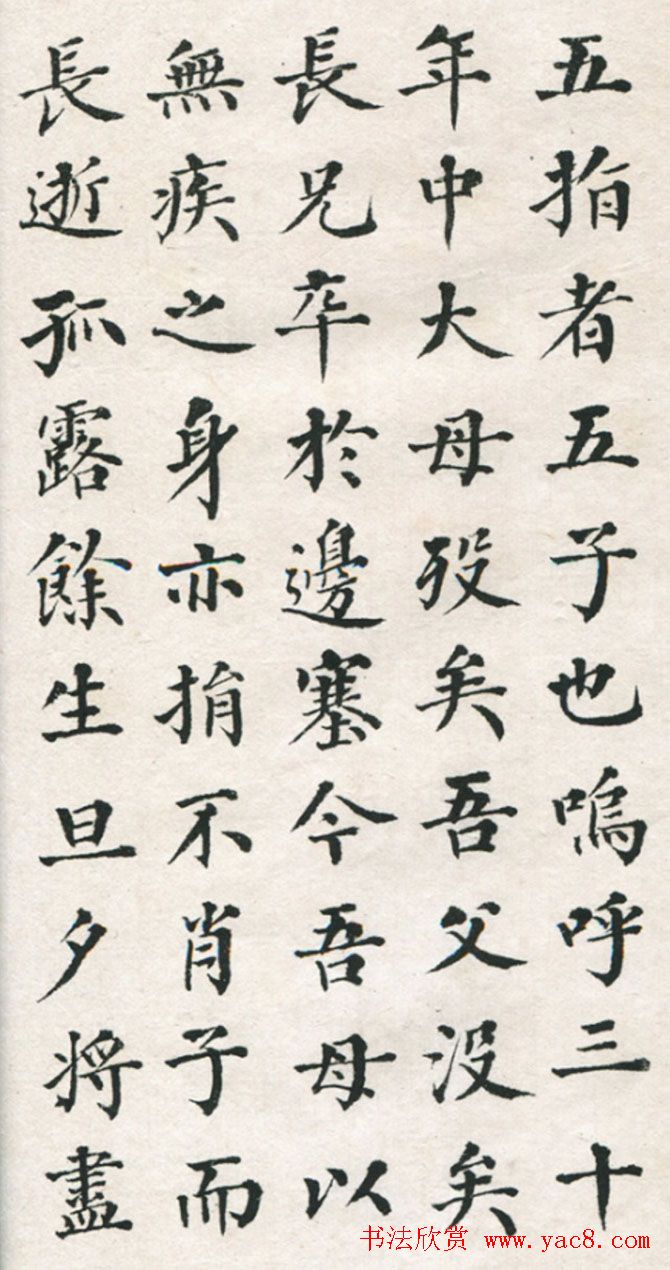 五指者五子也嗚呼三十
年中大母歿矣吾父沒矣
長兄卒於邊塞今吾母以
無疾之身亦捐不肖子而
長逝孤露餘生旦夕將盡
书法欣赏 www.yac8.com